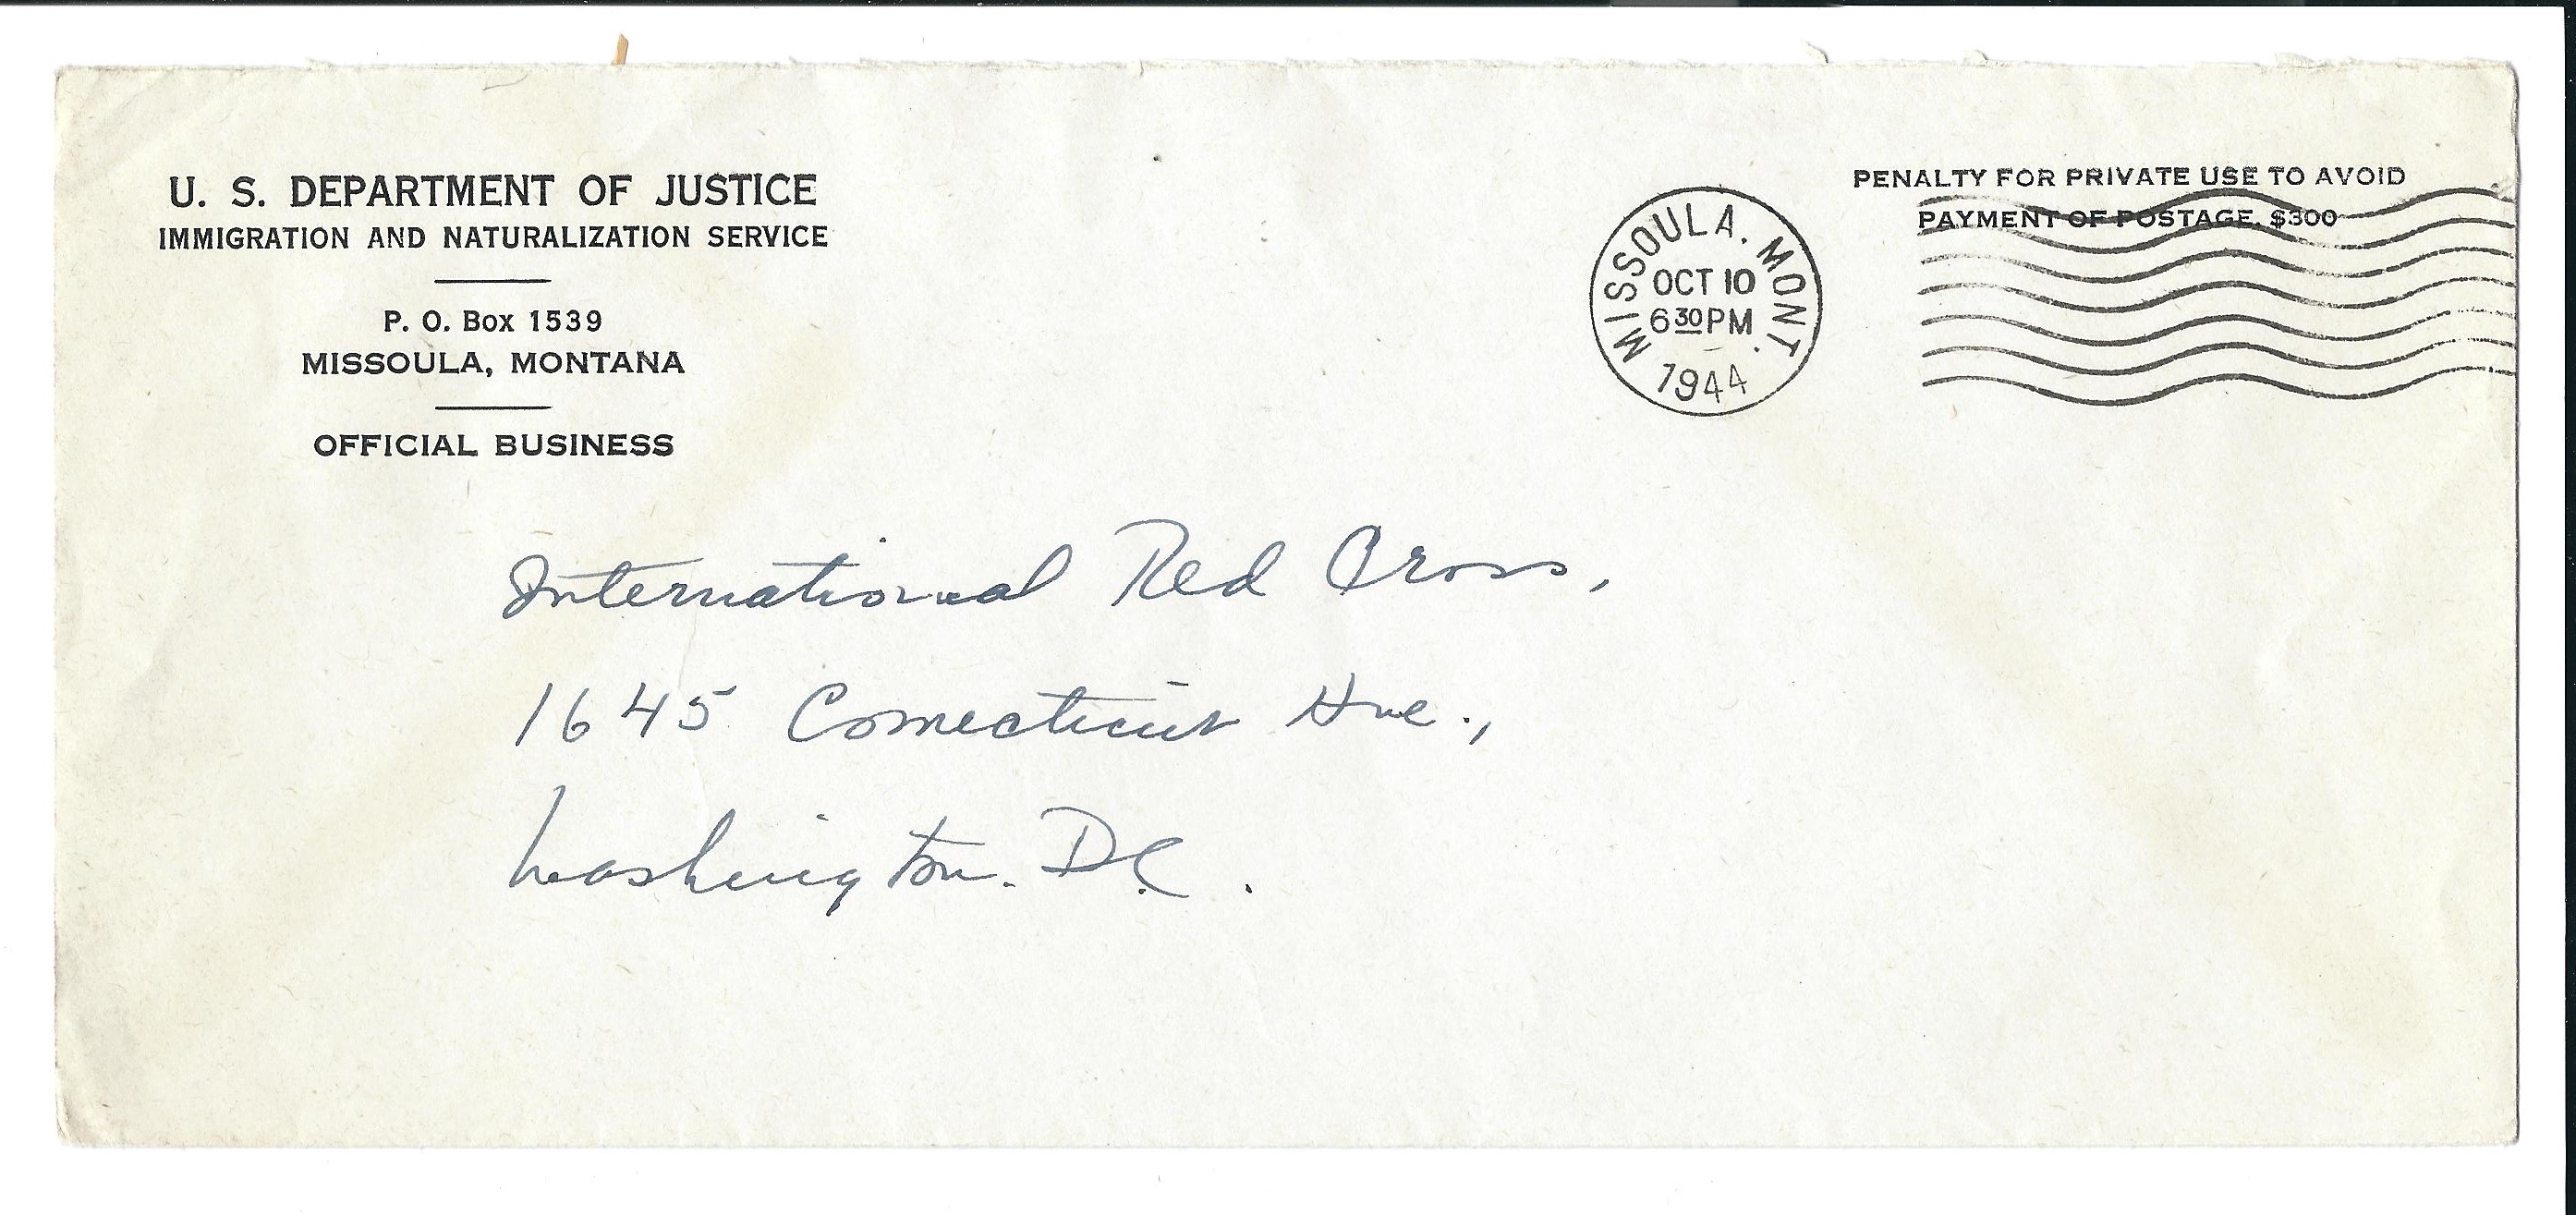 U. S. DEPARTMENT OF JUSTICE
IMMIGRATION AND NATURALIZATION SERVICE
P. O. Box 1539
MISSOULA, MONTANA
OFFICIAL BUSINESS
MISSOULA. MONT.
OCT 10
6 30 PM
1944
PENALTY FOR PRIVATE USE TO AVOID
PAYMENT OF POSTAGE, $300
International Red Cross,
1645 Connecticut Ave.,
Washington. D.C.